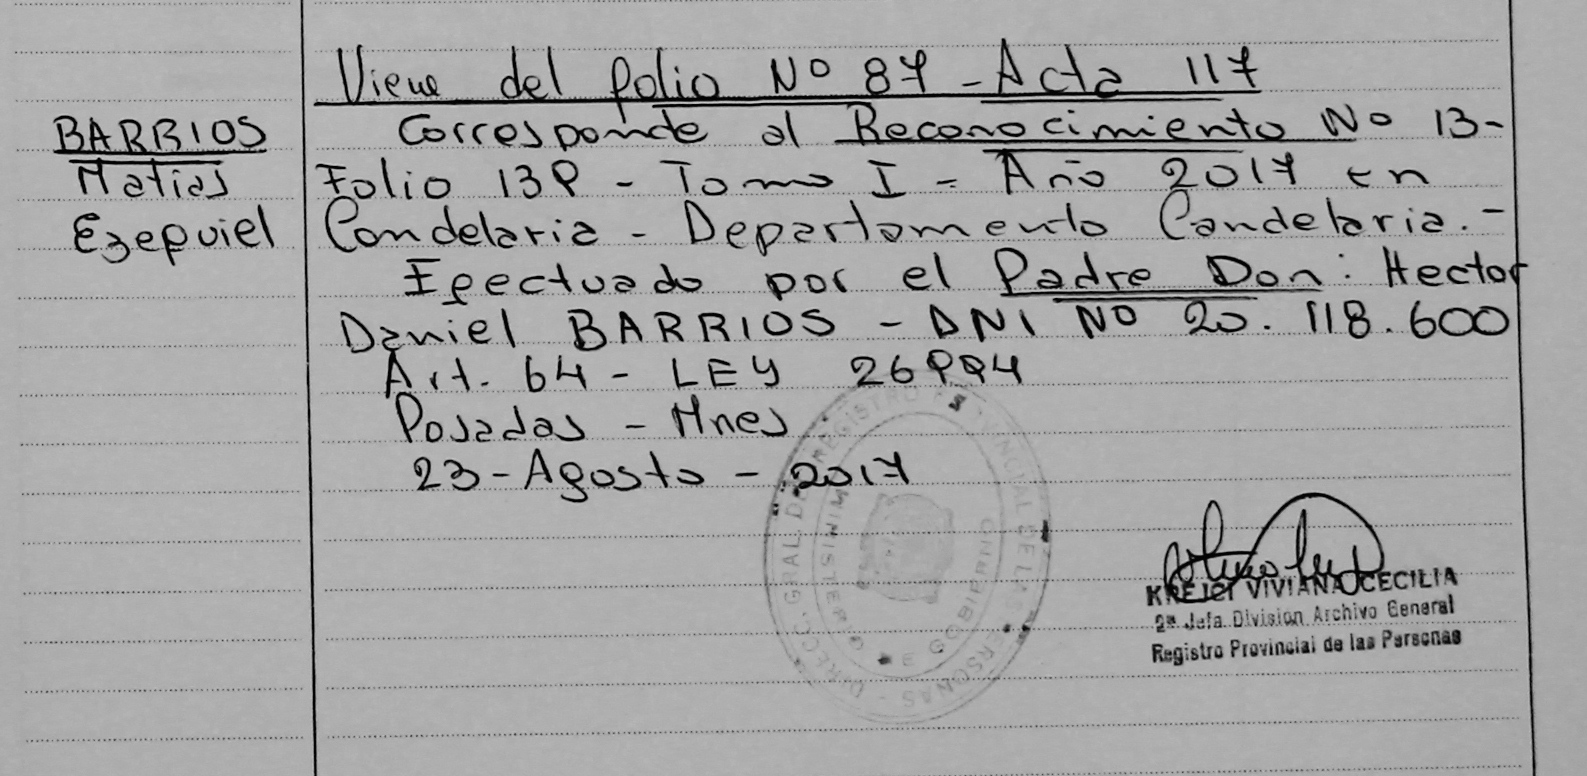 Viene del folio Nº 87 - Acta 117
BARRIOS
Matias
Ezequiel
Corresponde al Reconocimiento Nº 13-
Folio 139 - Tomo I - Año 2017 en
Candelaria - Departamento Candelaria.-
Efectuado por el Padre Don: Hector
Daniel BARRIOS - DNI Nº 20.118.600
Art. 64 - LEY 26994
Posadas - Mnes
23-Agosto-2017
DIRECC. GRAL. DEL REGISTRO PROVINCIAL DE LAS PERSONAS
MINISTERIO DE GOBIERNO
KREJCI VIVIANA CECILIA
2ª Jefa División Archivo General
Registro Provincial de las Personas